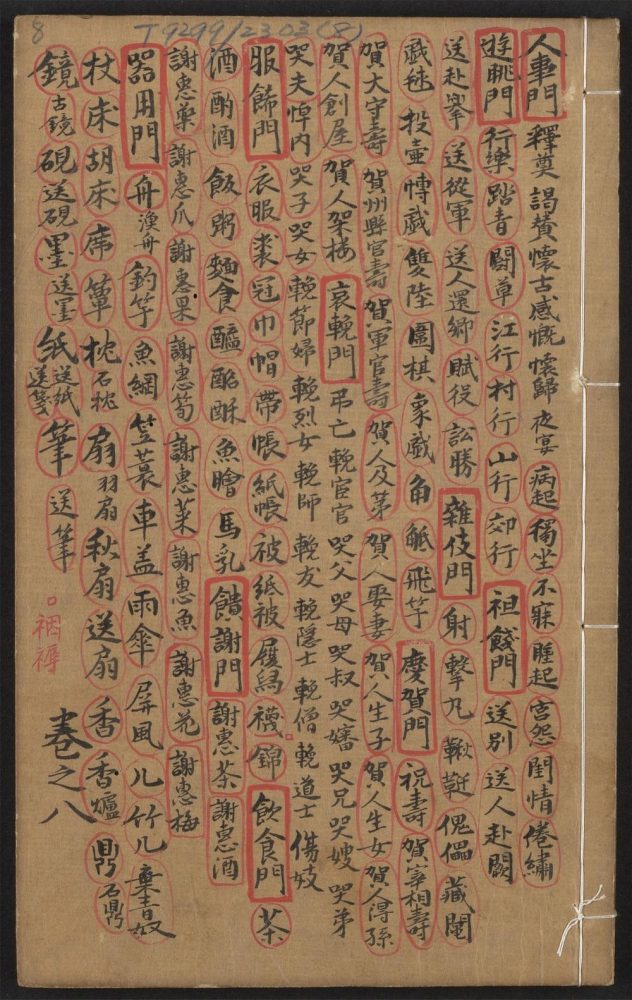 8
T 9299/2303(8)
人事門 釋奠 謁賛 懷古 感慨 懷歸 夜宴 病起 獨坐 不寐 睡起 宮怨 閨情 倦繡
遊眺門 行樂 踏青 鬪草 江行 村行 山行 郊行 祖餞門 送別 送人赴闕
送赴擧 送從軍 送人還鄉 賦役 訟勝 雜伎門 射 擊丸 鞦韆 傀儡 藏鬮
戲毬 投壺 博戲 雙陸 圍棋 象戲 角觝 飛竿 慶賀門 祝壽 賀宰相壽
賀大守壽 賀州縣官壽 賀軍官壽 賀人及苐 賀人娶妻 賀人生子 賀人生女 賀人得孫
賀人創屋 賀人架樓 哀輓門 弔亡 輓宦官 哭父 哭母 哭叔 哭嬸 哭兄 哭嫂 哭弟
哭夫 悼內 哭子 哭女 輓節婦 輓烈女 輓師 輓友 輓隱士 輓僧 輓道士 傷妓
服飾門 衣服 裘 冠 巾 帽 帶 帳 紙帳 被 紙被 履舄 襪 錦 飲食門 茶
酒 酌酒 飯 粥 麵食 醢 酩 酥 魚膾 馬乳 饋謝門 謝惠茶 謝惠酒
謝惠藥 謝惠瓜 謝惠果 謝惠筍 謝惠菜 謝惠魚 謝惠花 謝惠梅
器用門 舟 漁舟 釣竿 魚網 笠 蓑 車 盖 雨傘 屏風 几 竹几 棄青奴
杖 床 胡床 席 簟 枕 石枕 扇 羽扇 秋扇 送扇 香 香爐 鼎 石鼎
鏡 古鏡 硯 送硯 墨 送墨 紙 送紙 送箋 筆 送筆
裀褥
卷之八